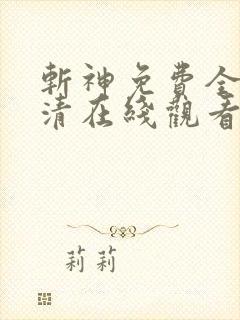 斬神免費全
清在綫觀看
莉莉